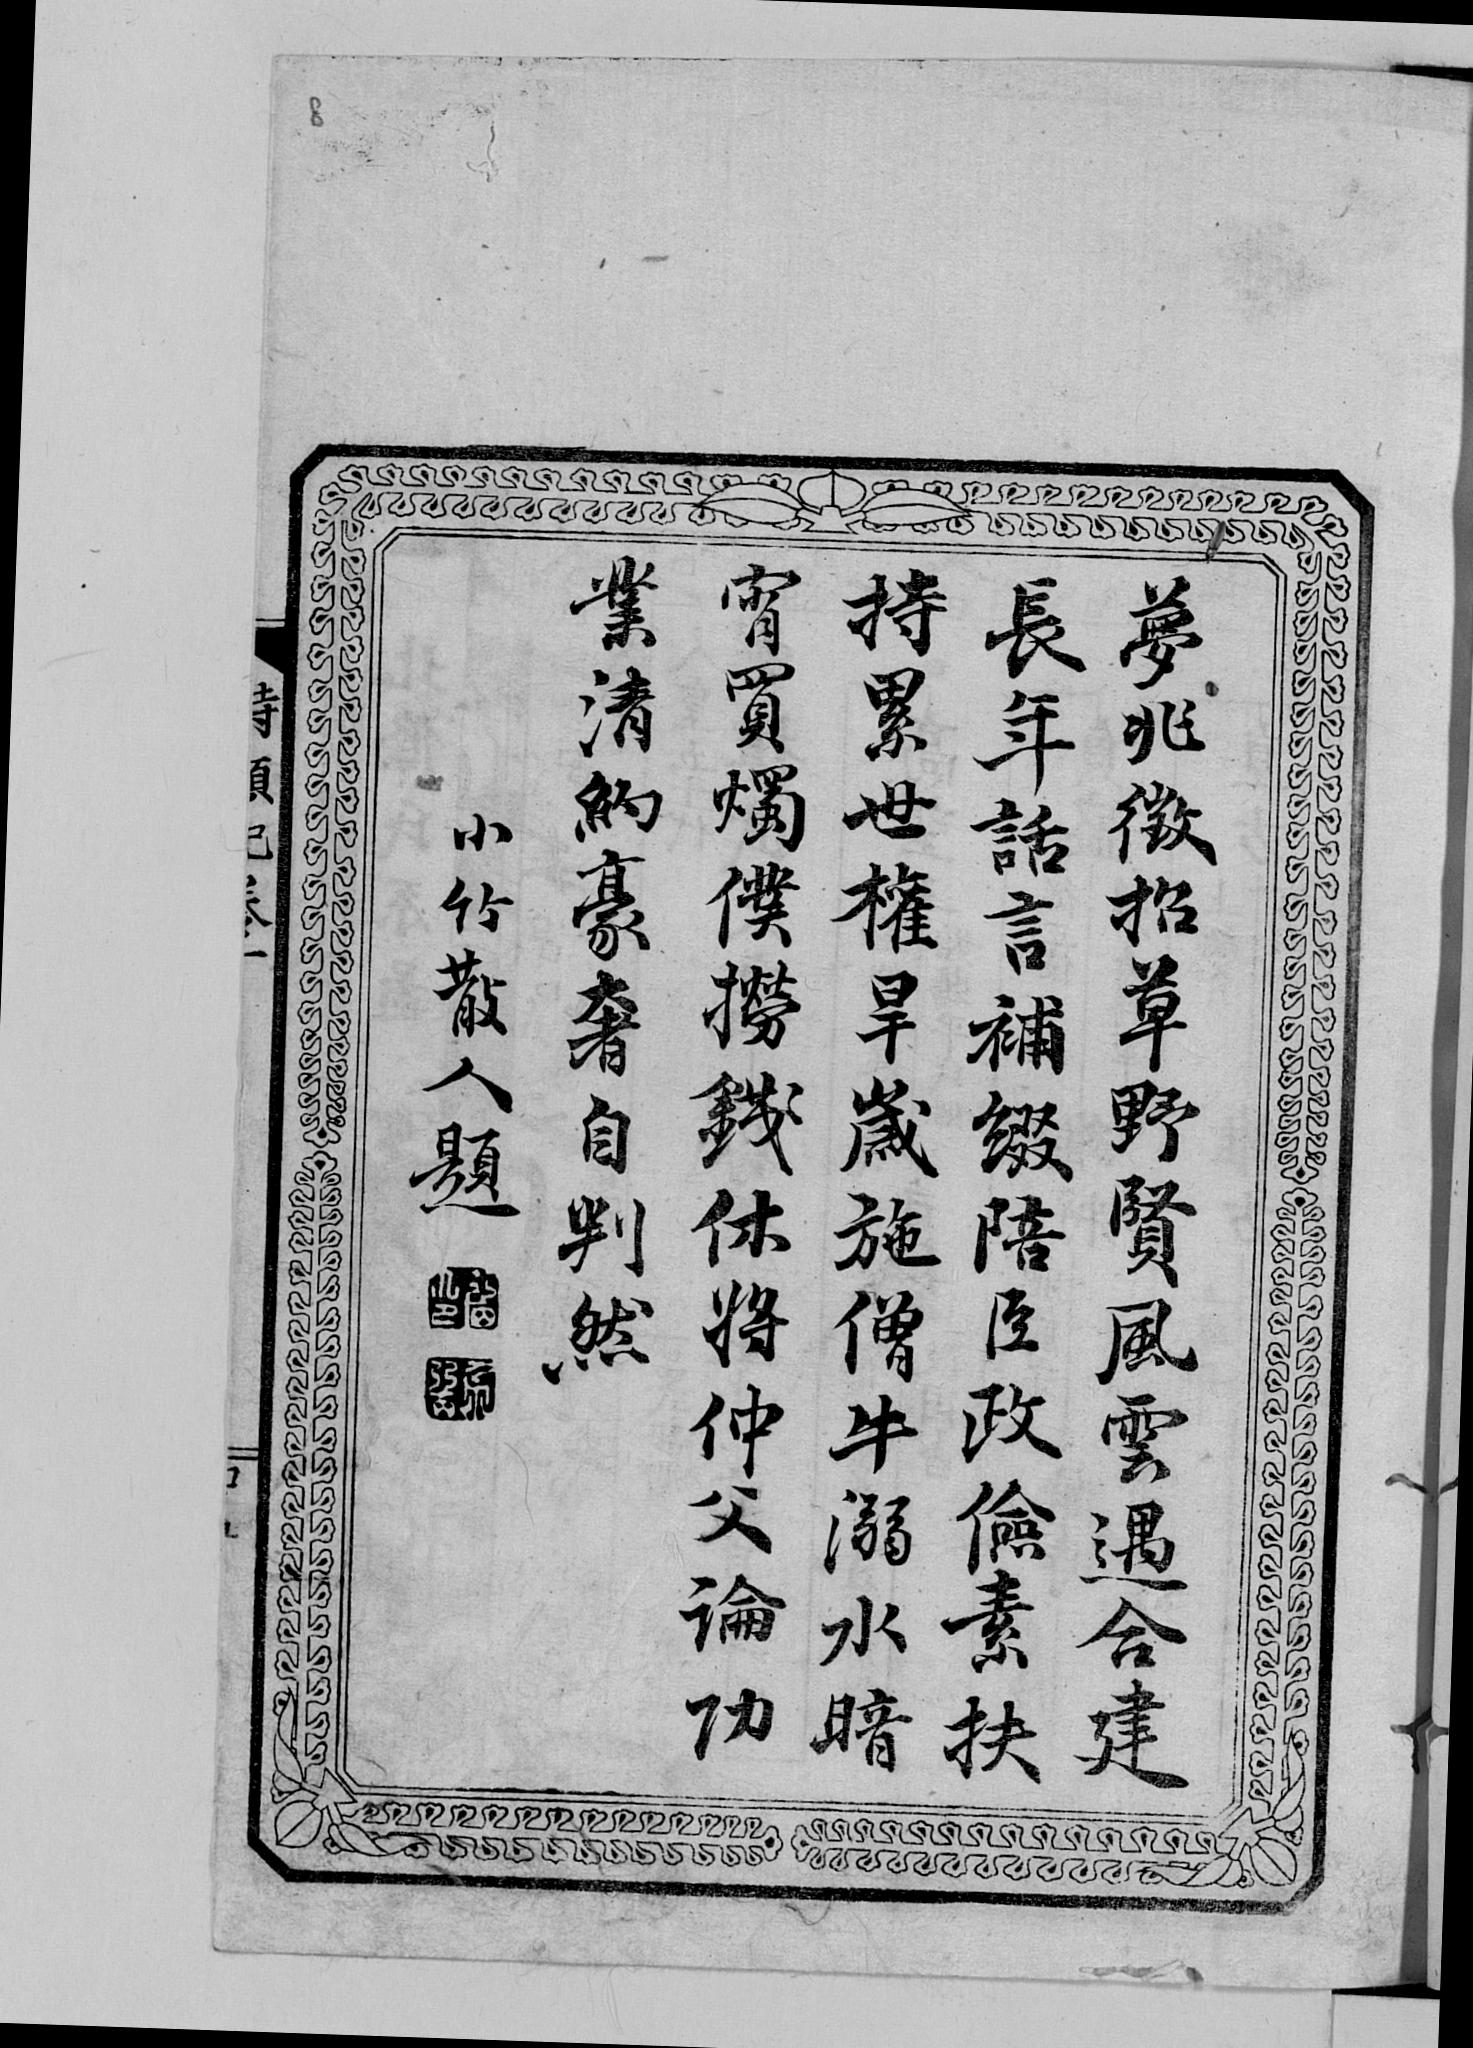 夢兆徵招草野賢風雲遇合建
長年話言補綴陪臣政儉素扶
持累世權旱歲施僧牛溺水暗
宵買燭僕撈錢休將仲父論功
業清約豪奢自判然
小竹散人題
時頼記卷一
8